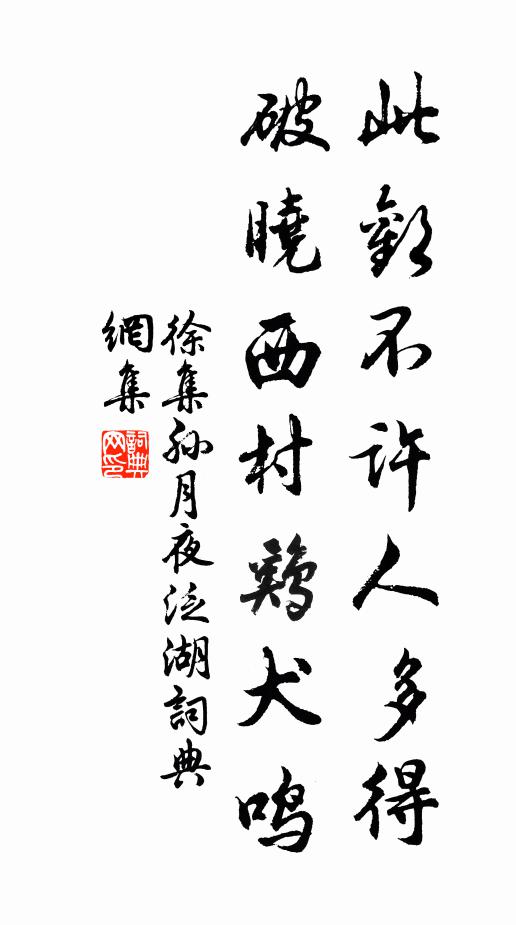 此歡不許人多得
破曉西村鷄犬鳴
徐集孙月夜泛湖詞典
網集
詞典
网印